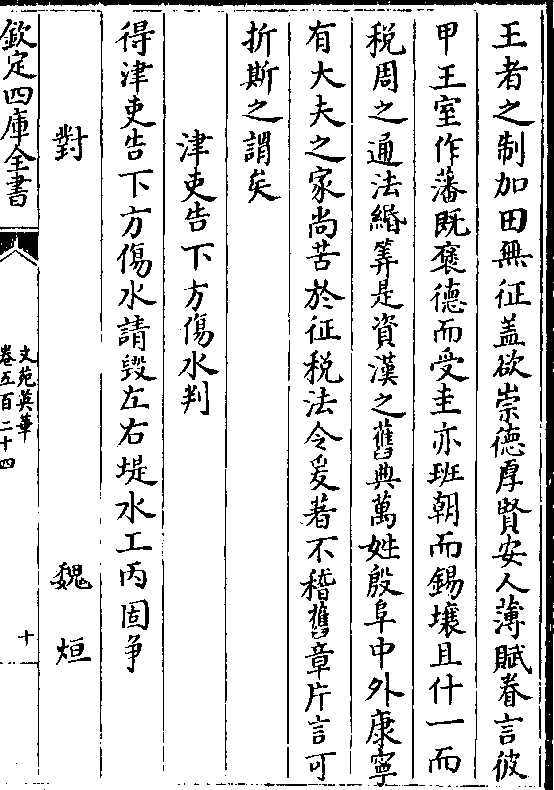 王者之制加田無征盖欲崇德厚賢安人薄賦眷言彼
甲王室作藩既襃德而受圭亦班朝而錫壤且什一而
税周之通法緡筭是資漢之舊典萬姓殷阜中外康寧
有大夫之家尚苦於征税法令爰著不稽舊章片言可
折斯之謂矣
津吏告下方傷水判
得津吏告下方傷水請毀左右堤水工丙固争
對 魏烜
欽定四庫全書
文苑英華
卷五百二十四
十